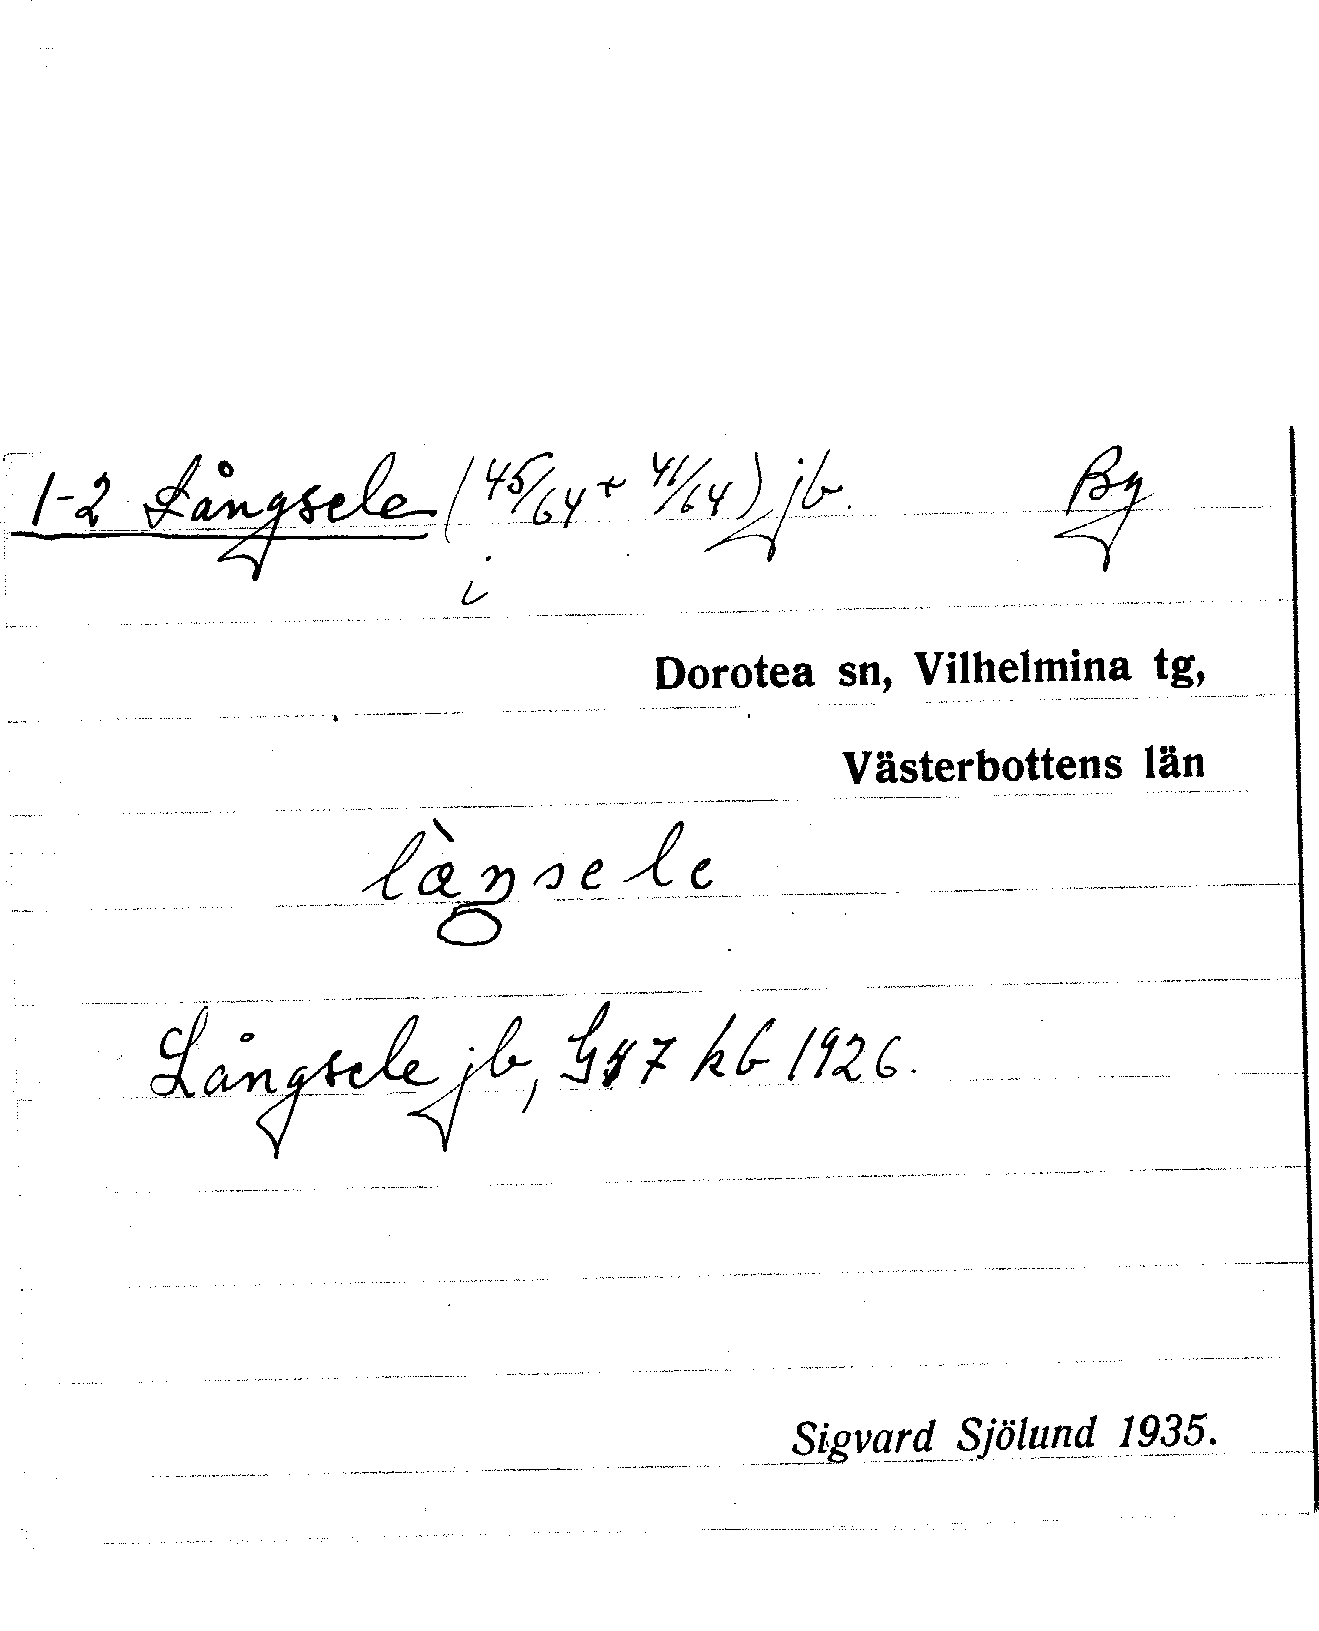 1-2 Långsele (45/64 + 41/64) jb. By
i
Dorotea sn, Vilhelmina tg,
Västerbottens län
làŋsele
Långsele jb, kb 1926.
Sigvard Sjölund 1935.